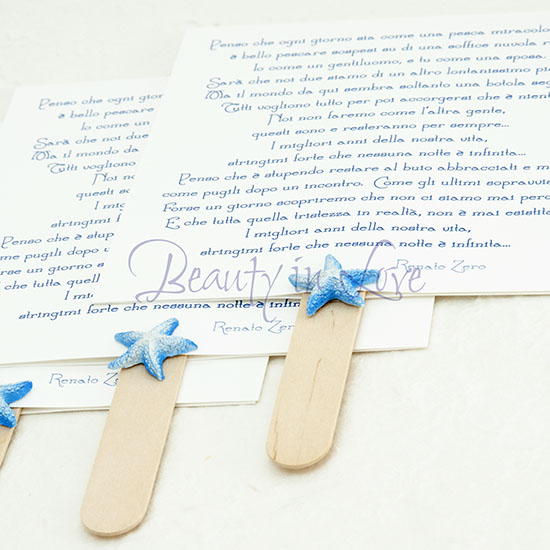 Penso che ogni giorno sia come una pesca miracolo
è bello pescare sospesi su di una soffice nuvola r
Io come un gentiluomo, e tu come una sposa.
Sarà che noi due siamo di un altro lontanissimo pi
Ma il mondo da qui sembra soltanto una botola seg
Tutti vogliono tutto per poi accorgersi che è nient
Noi non faremo come l'altra gente,
questi sono e resteranno per sempre...
I migliori anni della nostra vita,
stringimi forte che nessuna notte è infinita...
Penso che è stupendo restare al buio abbracciati e m
come pugili dopo un incontro. Come gli ultimi sopravvi
Forse un giorno scopriremo che non ci siamo mai per
E che tutta quella tristezza in realtà, non è mai esistit
I migliori anni della nostra vita,
stringimi forte che nessuna notte è infinita...
Renato Zero
Beauty in Love
Penso che ogni gior
è bello pescare
Io come un
Sarà che noi due
Ma il mondo da
Tutti vogliono
Noi no
questi so
I mi
stringimi f
Penso che è stup
come pugili dopo
Forse un giorno
E che tutta quella
I mi
stringimi forte che nessuna notte è infin
Renato Zero
Renato Zero